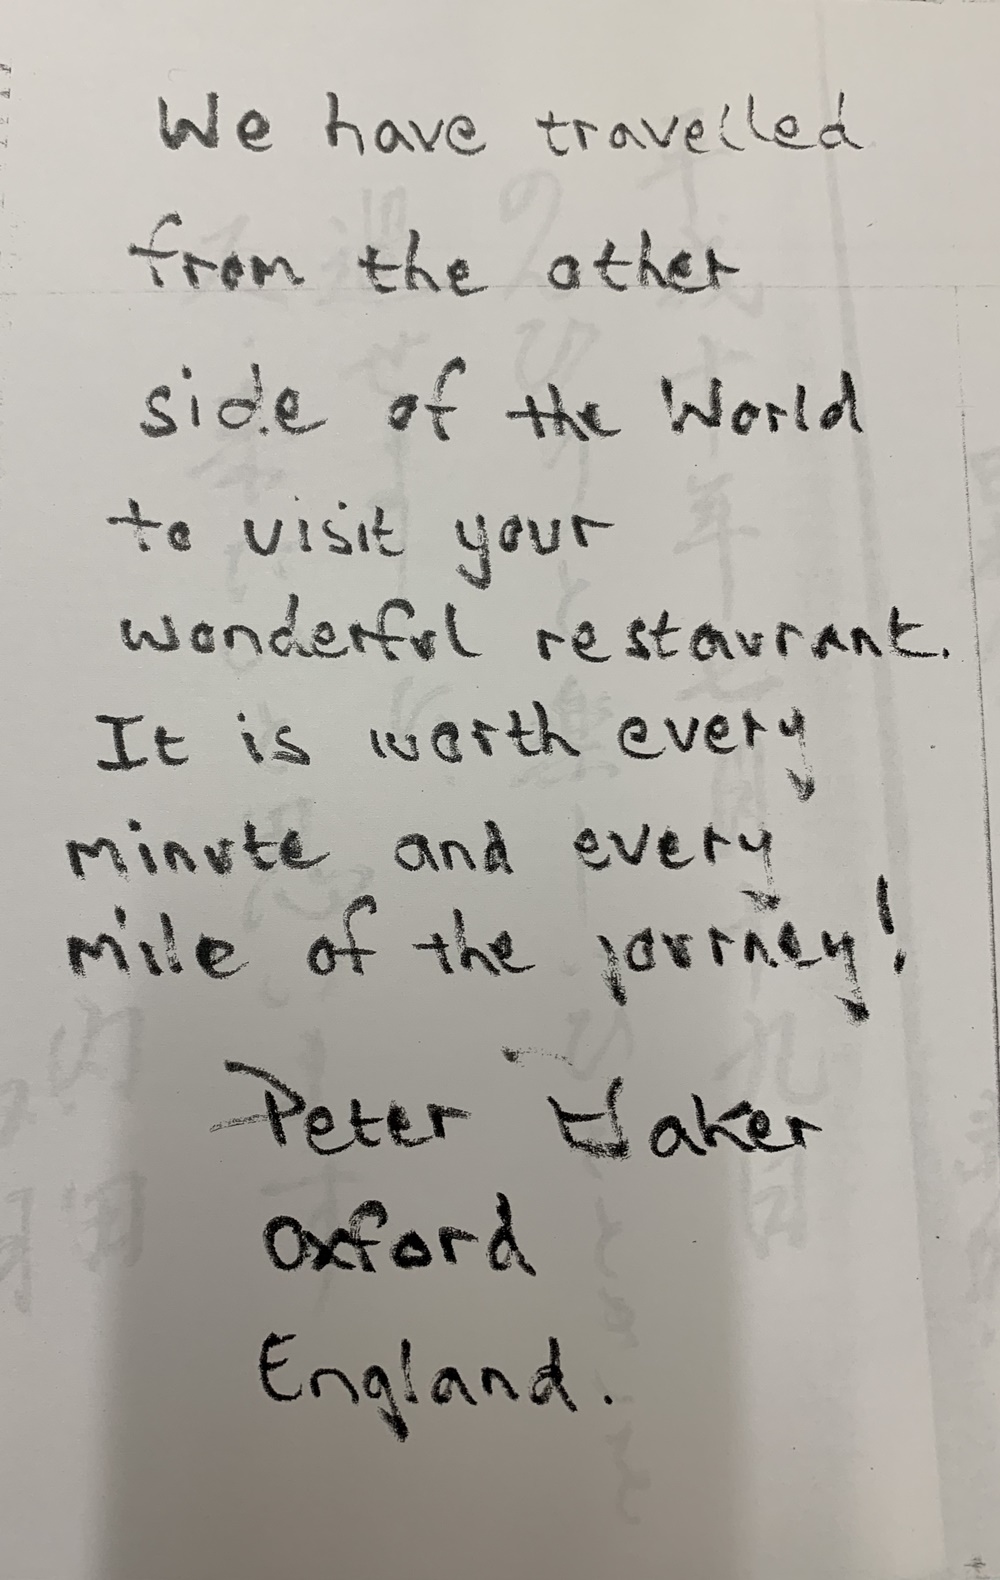 We have travelled
from the other
side of the World
to visit your
wonderful restaurant.
It is worth every
minute and every
mile of the journey!
Peter Haker
Oxford
England.